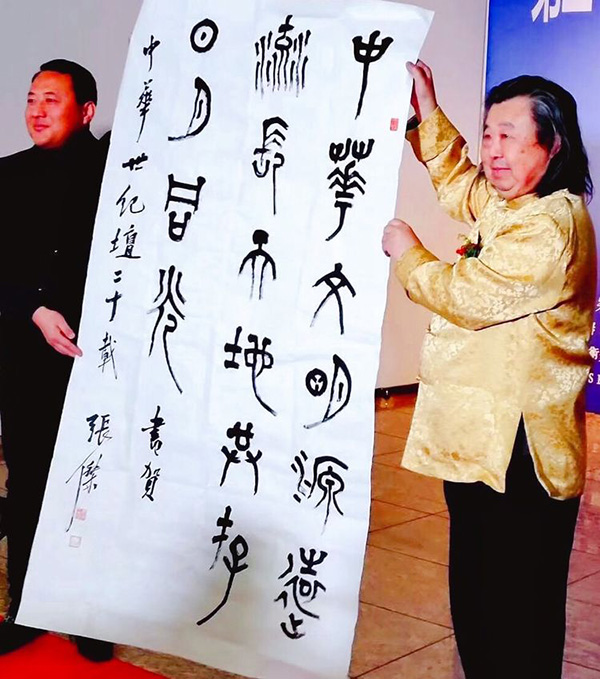 中華文明源遠
流長天地共存
日月同光
書賀
中華世紀壇二十載
張傑